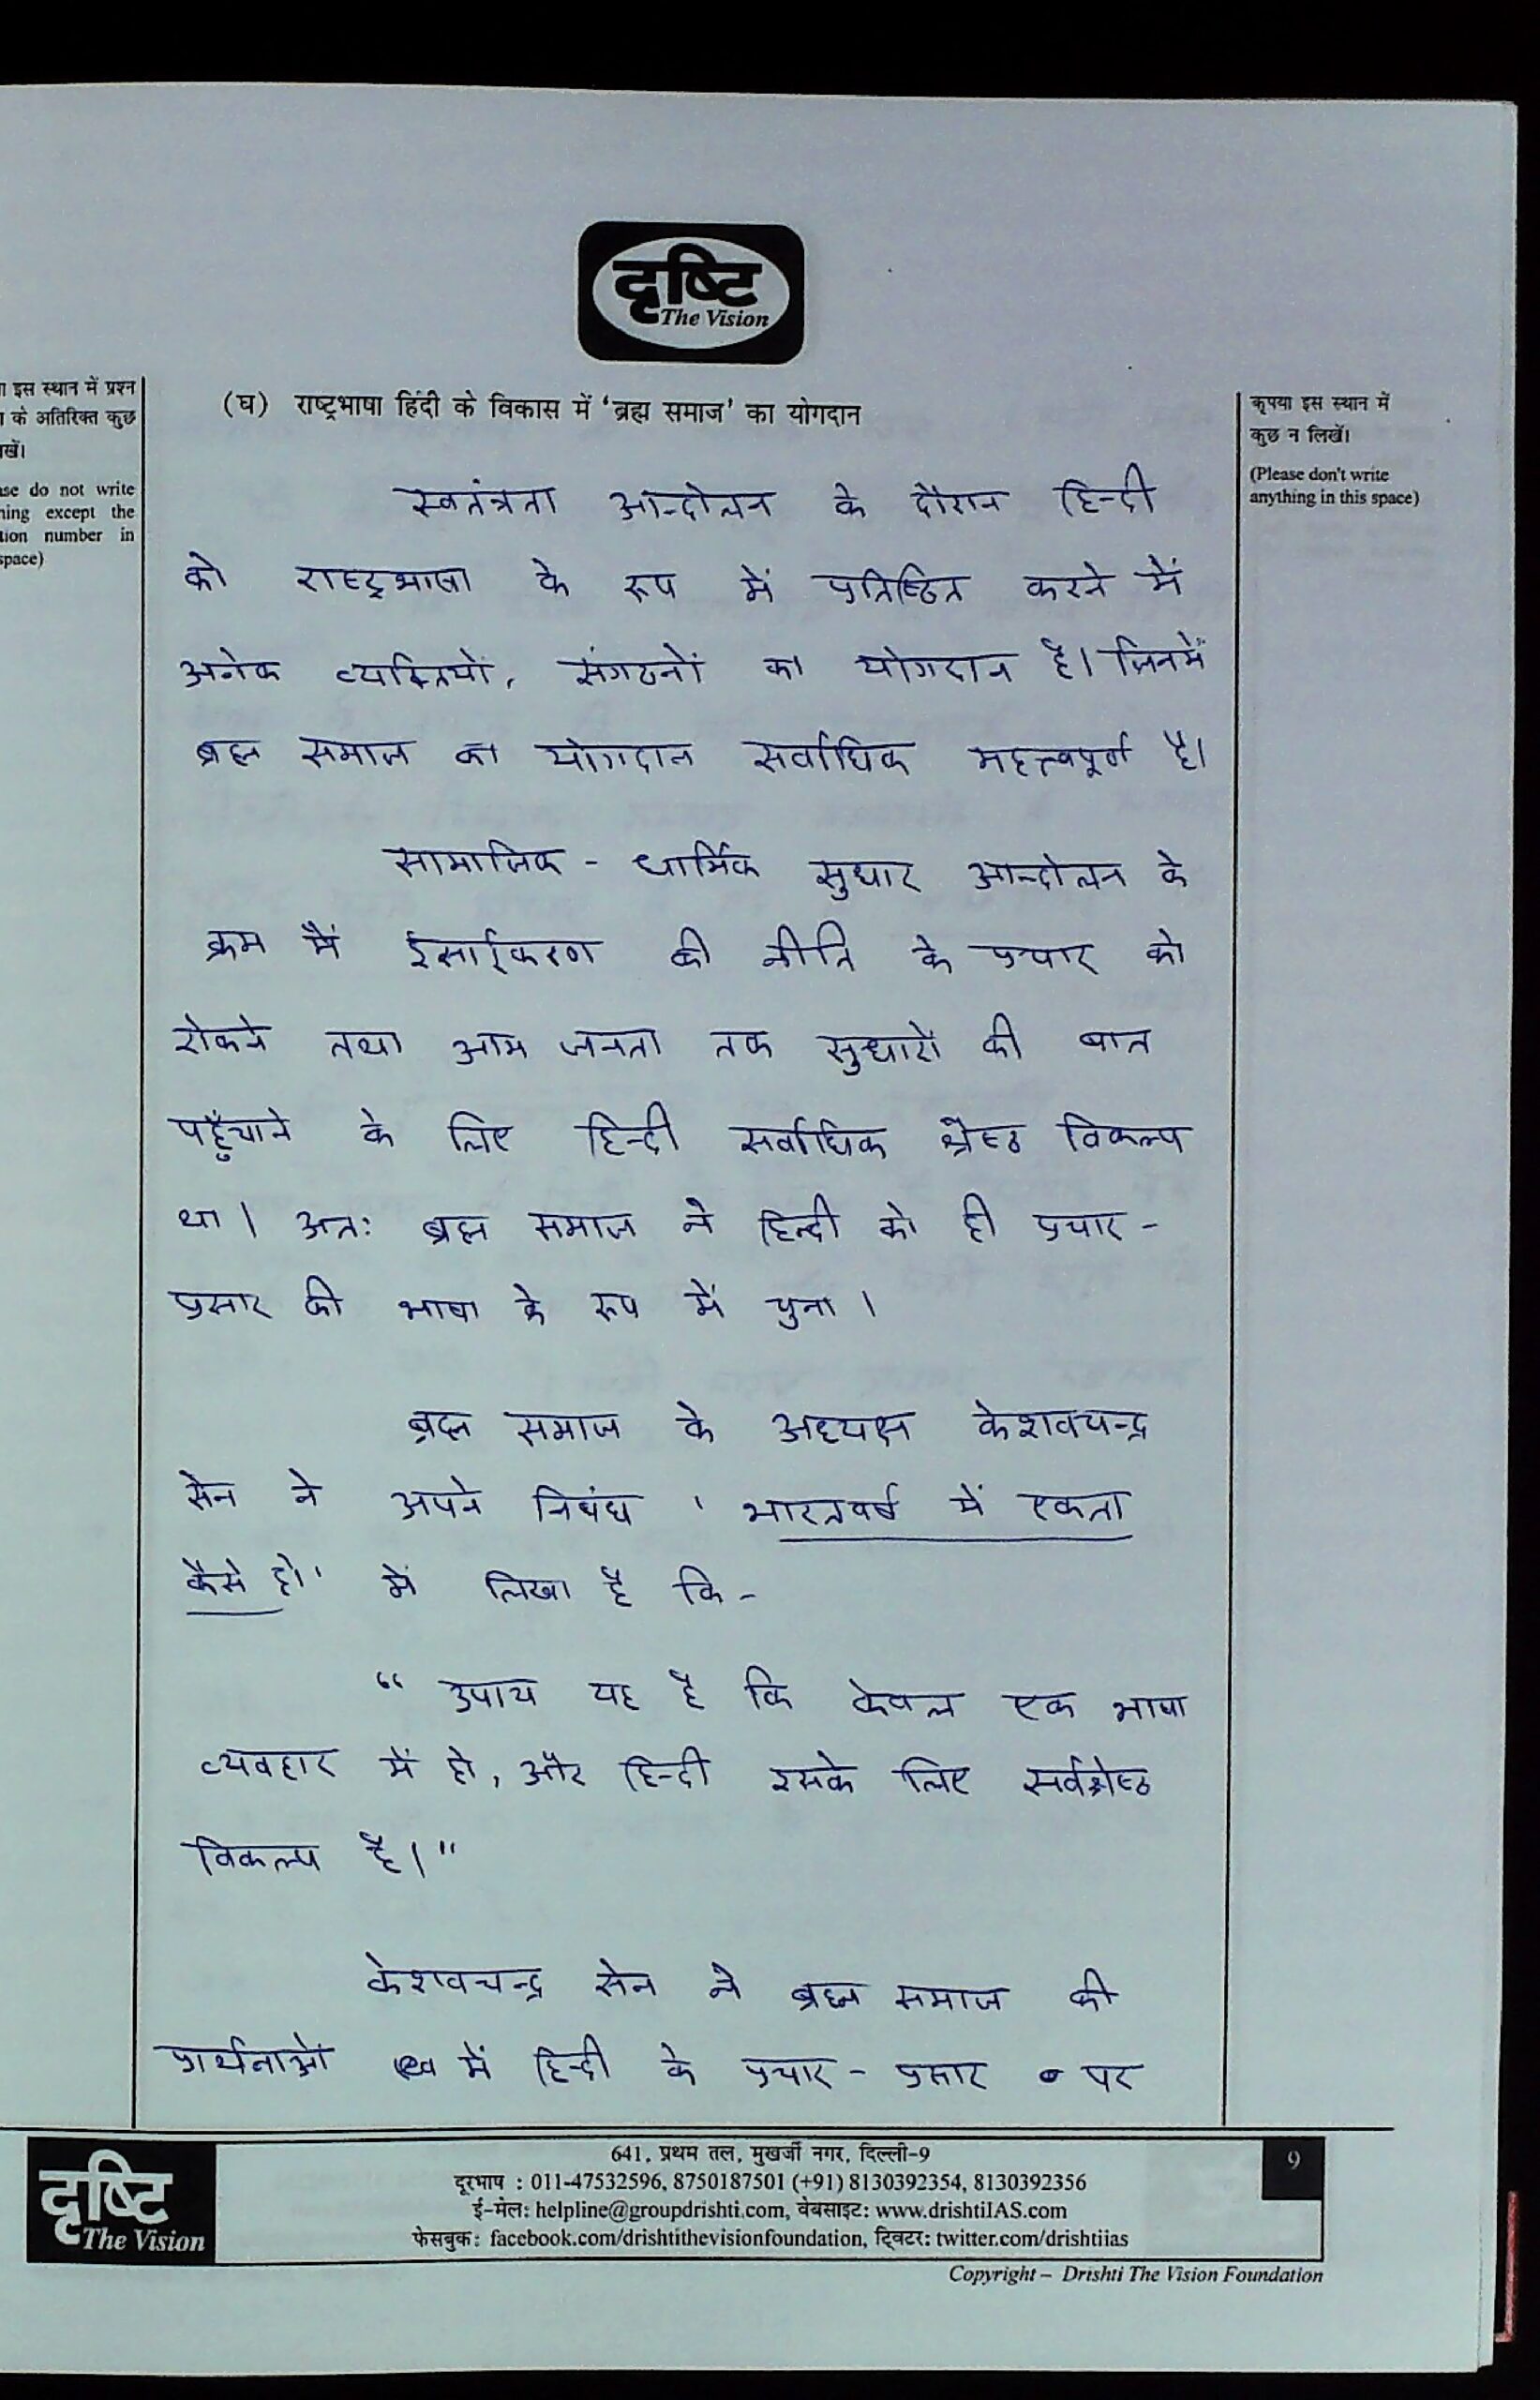 दृष्टि
The Vision
ा इस स्थान में प्रश्न
के अतिरिक्त कुछ
खें।
ase do not write
hing except the
tion number in
space)
(घ) राष्ट्रभाषा हिंदी के विकास में ‘ब्रह्म समाज’ का योगदान
कृपया इस स्थान में
कुछ न लिखें।
(Please don't write
anything in this space)
स्वतंत्रता आन्दोलन के दौरान हिन्दी
को राष्ट्रभाषा के रूप में प्रतिष्ठित करने में
अनेक व्यक्तियों, संगठनों का योगदान है। जिनमें
ब्रह्म समाज का योगदान सर्वाधिक महत्त्वपूर्ण है।
सामाजिक - धार्मिक सुधार आन्दोलन के
क्रम में ईसाईकरण की नीति के प्रचार को
रोकने तथा आम जनता तक सुधारों की बात
पहुँचाने के लिए हिन्दी सर्वाधिक श्रेष्ठ विकल्प
था। अतः ब्रह्म समाज ने हिन्दी को ही प्रचार -
प्रसार की भाषा के रूप में चुना।
ब्रह्म समाज के अध्यक्ष केशवचन्द्र
सेन ने अपने निबंध ' भारतवर्ष में एकता
कैसे हो' में लिखा है कि -
“ उपाय यह है कि केवल एक भाषा
व्यवहार में हो, और हिन्दी इसके लिए सर्वश्रेष्ठ
विकल्प है।"
केशवचन्द्र सेन ने ब्रह्म समाज की
प्रार्थनाओं में हिन्दी के प्रचार - प्रसार पर
दृष्टि
The Vision
641, प्रथम तल, मुखर्जी नगर, दिल्ली-9
दूरभाष : 011-47532596, 8750187501 (+91) 8130392354, 8130392356
ई-मेल: helpline@groupdrishti.com, वेबसाइट: www.drishtiIAS.com
फेसबुक: facebook.com/drishtithevisionfoundation, ट्विटर: twitter.com/drishtiias
9
Copyright – Drishti The Vision Foundation